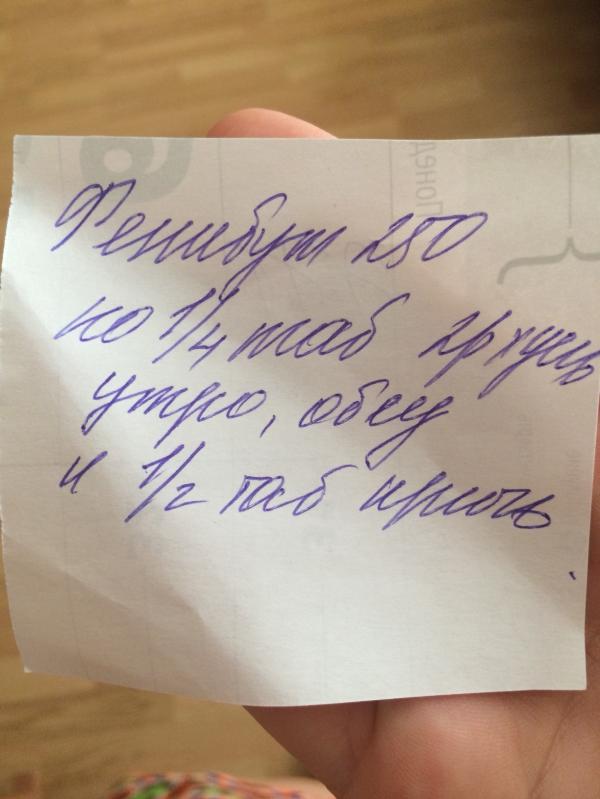 Фенибут 250
по 1/4 таб 2р
утро, обед
и 1/2 таб
Понед